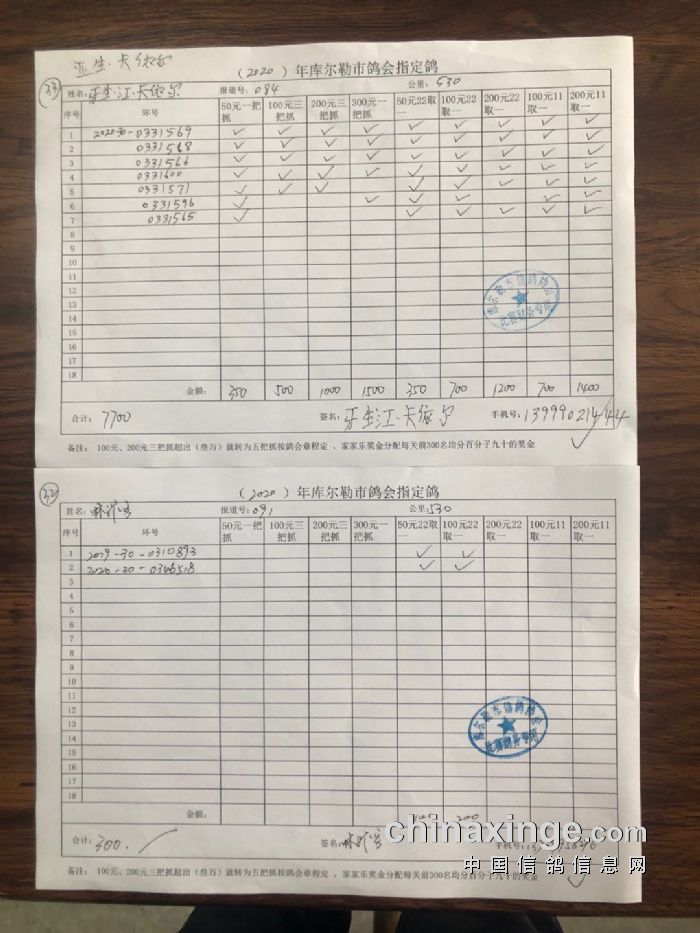 (2020)年库尔勒市鸽会指定鸽
33
姓名: 报道号: 084 公里: 530
序号 环号 50元一把抓 100元三把抓 200元三把抓 300元一把抓 50元22取一 100元22取一 200元22取一 100元11取一 200元11取一
1 2020-30-0331569 ✓ ✓ ✓ ✓ ✓ ✓ ✓ ✓ ✓
2 0331568 ✓ ✓ ✓ ✓ ✓ ✓ ✓ ✓ ✓
3 0331566 ✓ ✓ ✓ ✓ ✓ ✓ ✓ ✓ ✓
4 0331600 ✓ ✓ ✓ ✓ ✓ ✓ ✓ ✓ ✓
5 0331571 ✓ ✓ ✓ ✓ ✓ ✓ ✓ ✓
6 0331596 ✓ ✓ ✓ ✓ ✓ ✓
7 0331565 ✓ ✓ ✓ ✓ ✓ ✓
8
9
10
11
12
13
14
15
16
17
18
金额: 350 500 1000 1500 350 700 1200 700 1400
合计: 7700 签名: 牙生江·卡依尔 手机号: 13999021444
备注: 100元、200元三把抓超出(叁万)就转为五把抓按鸽会章程定,家家乐奖金分配每关前300名均分百分子九十的奖金
(2020)年库尔勒市鸽会指定鸽
姓名: 报道号: 091 公里: 530
序号 环号 50元一把抓 100元三把抓 200元三把抓 300元一把抓 50元22取一 100元22取一 200元22取一 100元11取一 200元11取一
1 2019-30-0310893 ✓ ✓
2 2020-30-0346518 ✓ ✓
3
4
5
6
7
8
9
10
11
12
13
14
15
16
17
18
金额: 200
合计: 300. 签名: 手机号:
备注: 100元、200元三把抓超出(叁万)就转为五把抓按鸽会章程定,家家乐奖金分配每关前300名均分百分子九十的奖金
chinaxinge.com
中国信鸽信息网